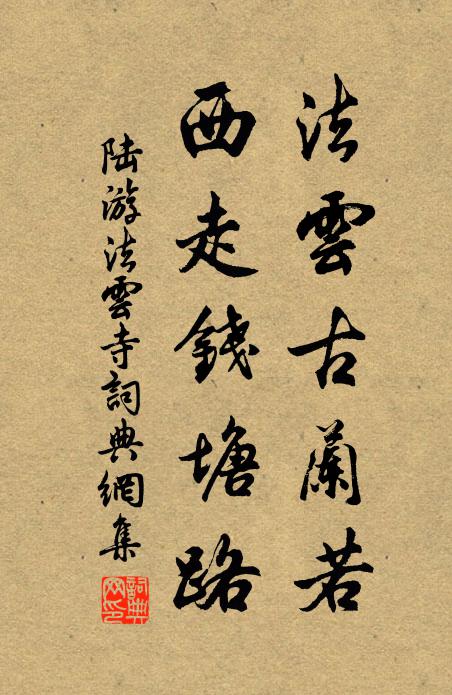 法雲古蘭若
西走錢塘路
陆游法雲寺詞典網集
詞典網印